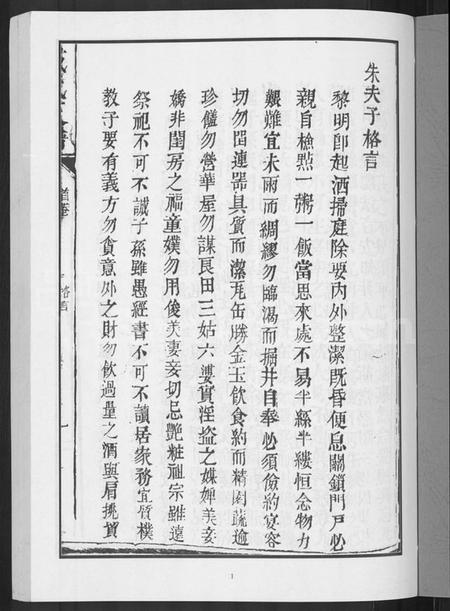 朱夫子格言
黎明卽起洒掃庭除要內外整潔旣昏便息關鎖門戶必
親自檢點一粥一飯當思來處不易半絲半縷恒念物力
艱難宜未雨而綢繆勿臨渴而掘井自奉必須儉約宴客
切勿畱連器具質而潔瓦缶勝金玉飲食約而精園蔬逾
珍饈勿營華屋勿謀良田三姑六婆實淫盜之媒婢美妾
嬌非閨房之福童僕勿用俊美妻妾切忌艷粧祖宗雖遠
祭祀不可不誠子孫雖愚經書不可不讀居家務宜質樸
敎子要有義方勿貪意外之財勿飲過量之酒與肩挑貿
格言
一
1